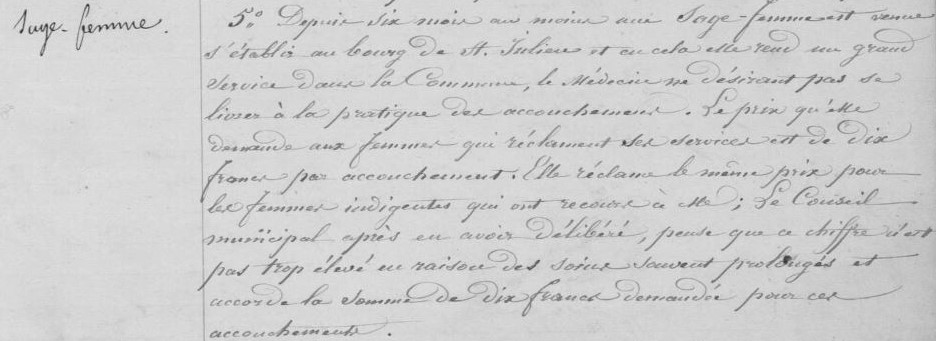 Sage-femme.
5.º Depuis six mois au moins une Sage-femme est venue
s'établir au bourg de St. Julien et en cela elle rend un grand
service dans la Commune, le Médecin ne désirant pas se
livrer à la pratique des accouchements. Le prix qu'elle
demande aux femmes qui réclament ses services est de dix
francs par accouchement. Elle réclame le même prix pour
les femmes indigentes qui ont recours à elle ; Le Conseil
municipal après en avoir délibéré, pense que ce chiffre n'est
pas trop élevé en raison des soins souvent prolongés et
accorde la somme de dix francs demandée pour ces
accouchements.